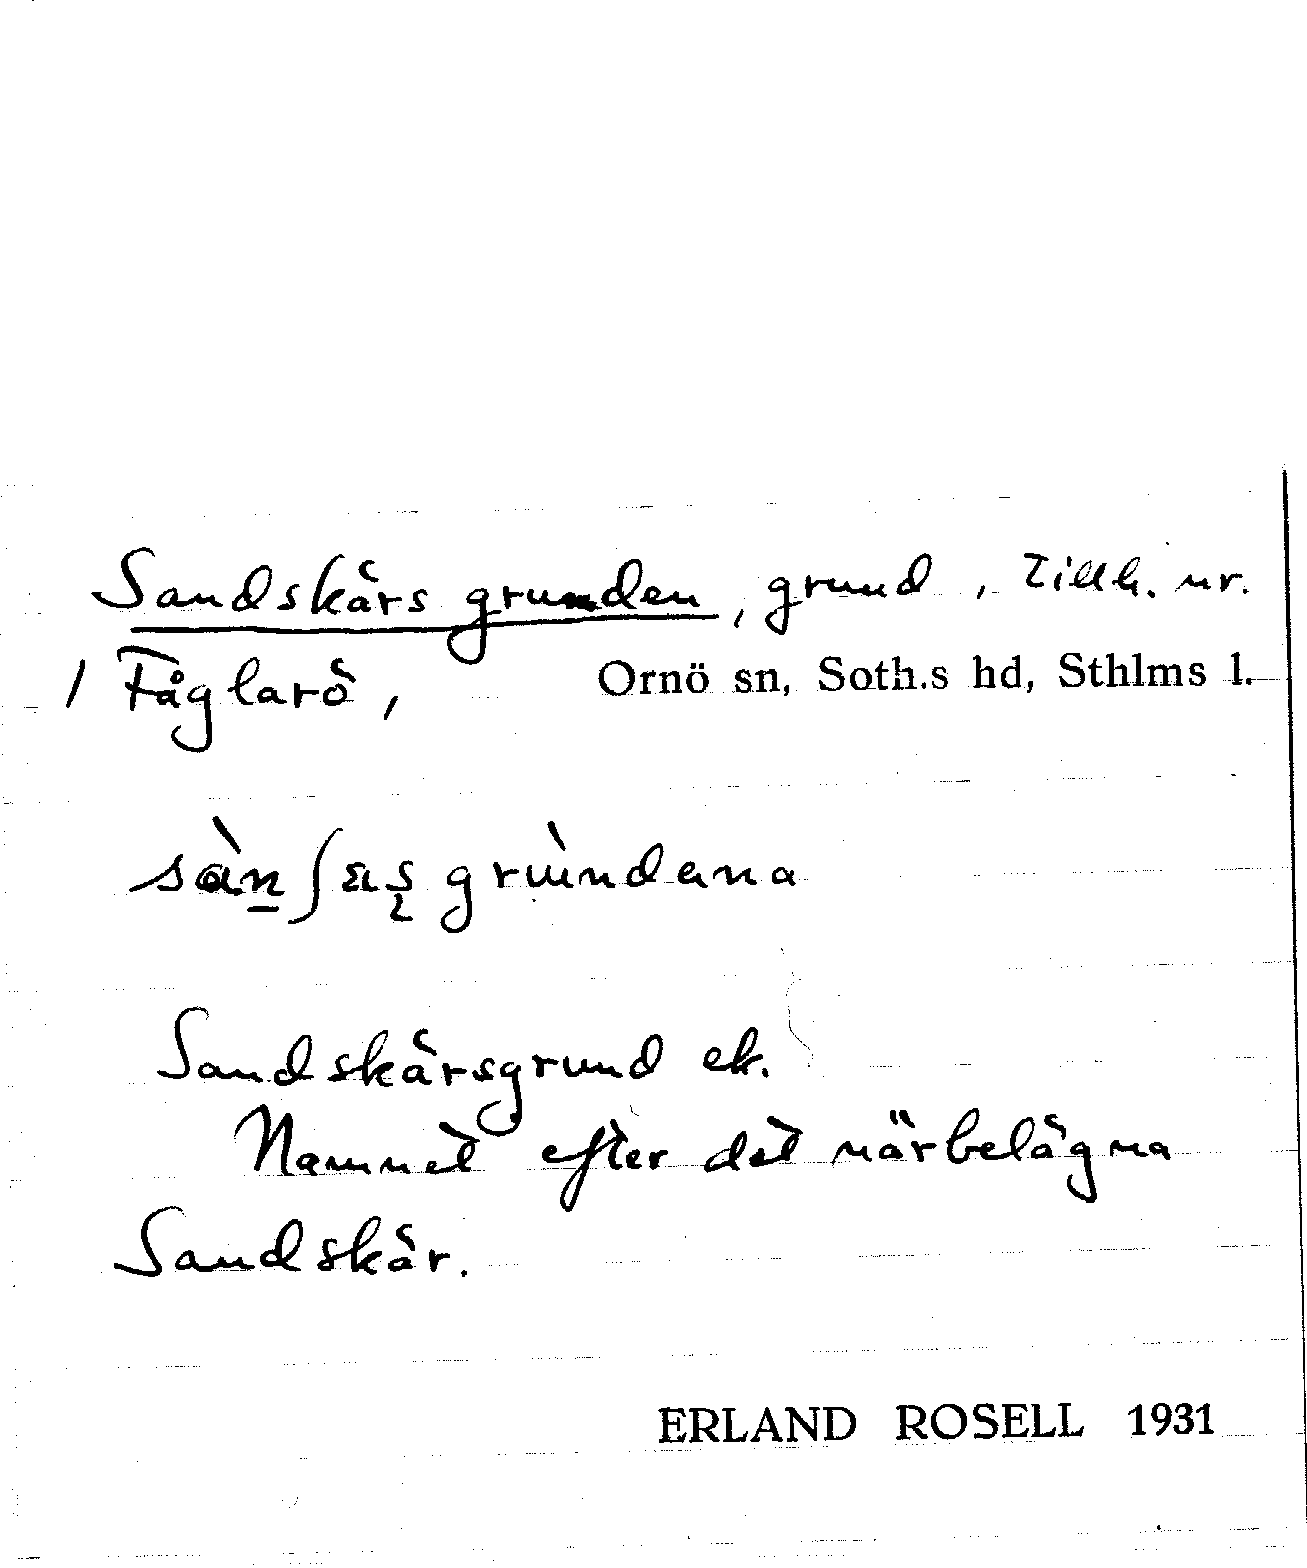 Sandskärs grunden, grund, tillh. nr.
1 Fåglarö, Ornö sn, Soth.s hd, Sthlms l.
sàn̲ʃäş grùndana
Sandskärsgrund ek.
Namnet efter det närbelägna
Sandskär.
ERLAND ROSELL 1931